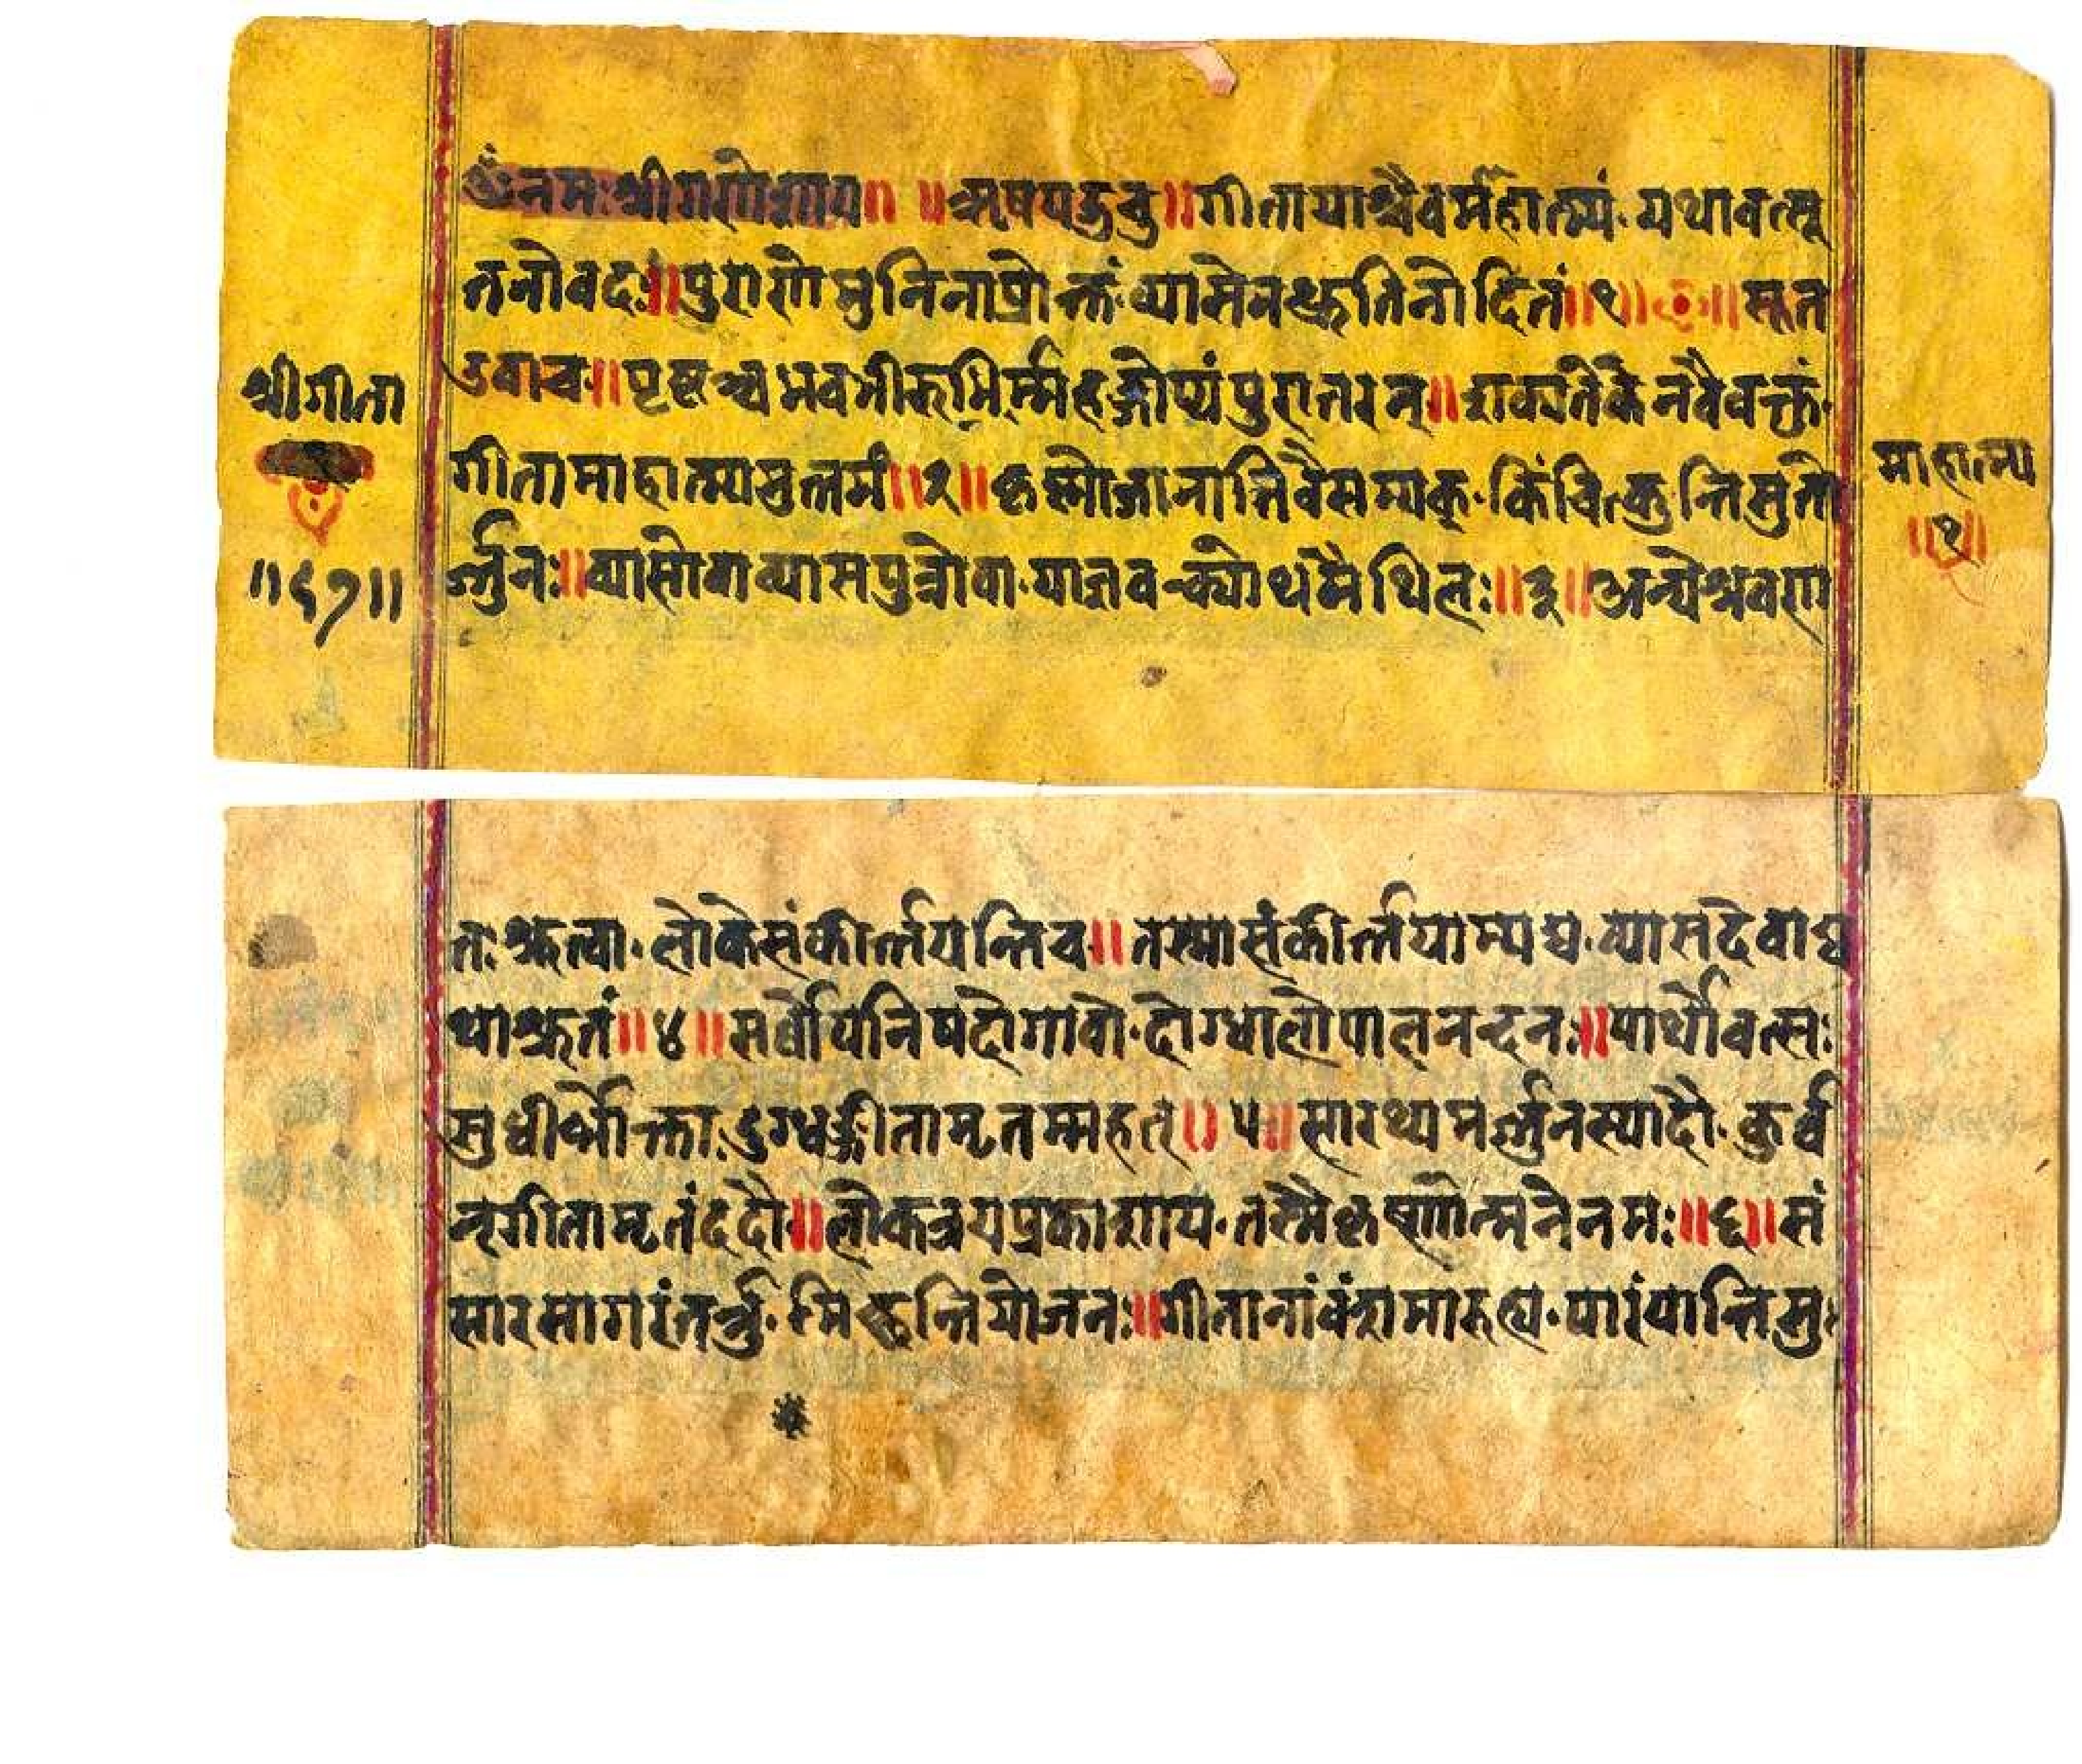 ॐनमःश्रीगणेशाय॥ ॥ऋषयऊचु॥गीतायाश्चैवर्महात्म्यं यथावत्सू
तनोवदः॥पुराणेमुनिनाप्रोक्तं व्यासेनश्रुतिनोदितं॥१॥ ॥सूत
उवाच॥पृष्टन्च भवभीरुभिर्म्महद्गोप्यंपुरातनम्॥शक्यतेकेनवैवक्तं
गीतामाहात्म्यमुत्तमं॥२॥कृष्णोजानात्तिवैसम्यक् किंचित्कुन्तिसुतो
र्ज्जुनः॥व्यासोवाव्यासपुत्रोवा याज्ञवल्क्योथमैथिलः॥३॥अन्येश्रवण
श्रीगीता
॥९७॥
माहात्म्य
॥१॥
तःश्रुत्वा लोकेसंकीर्त्तयन्तिच॥तस्मासंकीर्त्तयाम्यद्य व्यासदेवाद्य
थाश्रुतं॥४॥सर्वोपनिषदोगावो दोग्धालोपालनन्दनः॥पार्थोवत्सः
सुधीर्भोक्ता दुग्धङ्गीतामृतम्महत्॥५॥सारथ्यमर्ज्जुनस्यादौ कुर्व
न्गीतामृतंददौ॥लोकत्रयप्रकाशाय तस्मैकृष्णात्मनेनमः॥६॥सं
सारसागरंतर्त्तु मिछन्तियोजनः॥गीतानांवंशमारुह्य पारंयान्तिसु